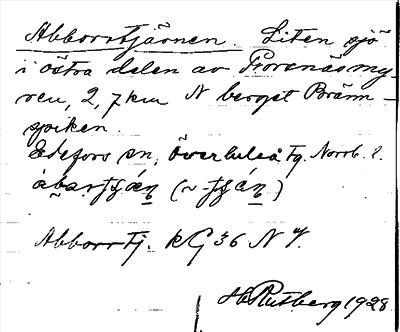 Abborrtjärnen. Liten sjö
i östra delen av Storenäsmy-
ren, 2,7 km N berget Porann-
poiken.
Edefors sn, Överluleå Tg. Norrb. l.
Abborrtj. kG 36 N
H. Rutberg 1928